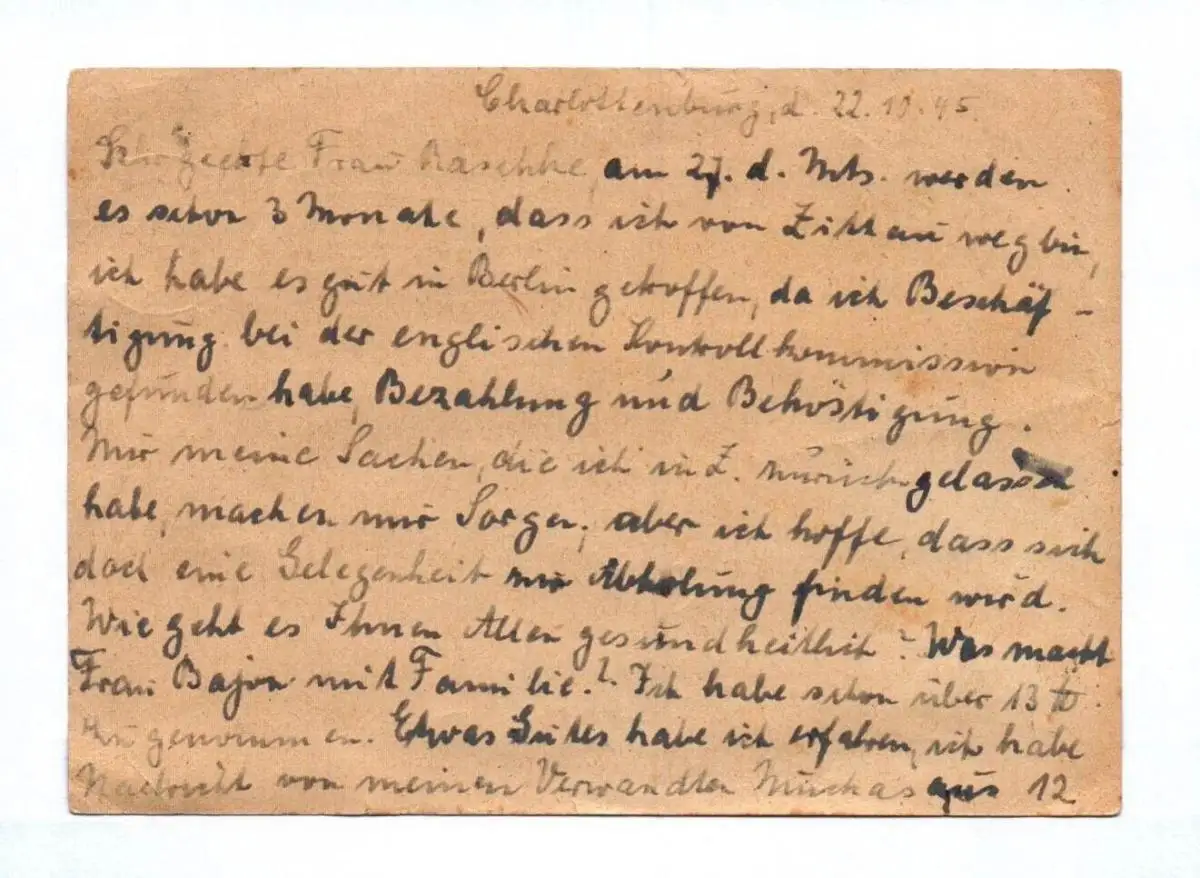 Charlottenburg, d. 22.10.45.
Sehr geehrte Frau Raschke, am 27. d. Mts. werden
es schon 3 Monate, dass ich von Zittau weg bin,
ich habe es gut in Berlin getroffen, da ich Beschäf-
tigung bei der englischen Kontrollkommission
gefunden habe, Bezahlung und Beköstigung.
Nur meine Sachen, die ich in Z. zurückgelassen
habe, machen mir Sorgen, aber ich hoffe, dass sich
doch eine Gelegenheit zur Abholung finden wird.
Wie geht es Ihnen Allen gesundheitlich? Was macht
Frau Bajon mit Familie? Ich habe schon über 13 ℔
zugenommen. Etwas Gutes habe ich erfahren, ich habe
Nachricht von meinen Verwandten aus 12